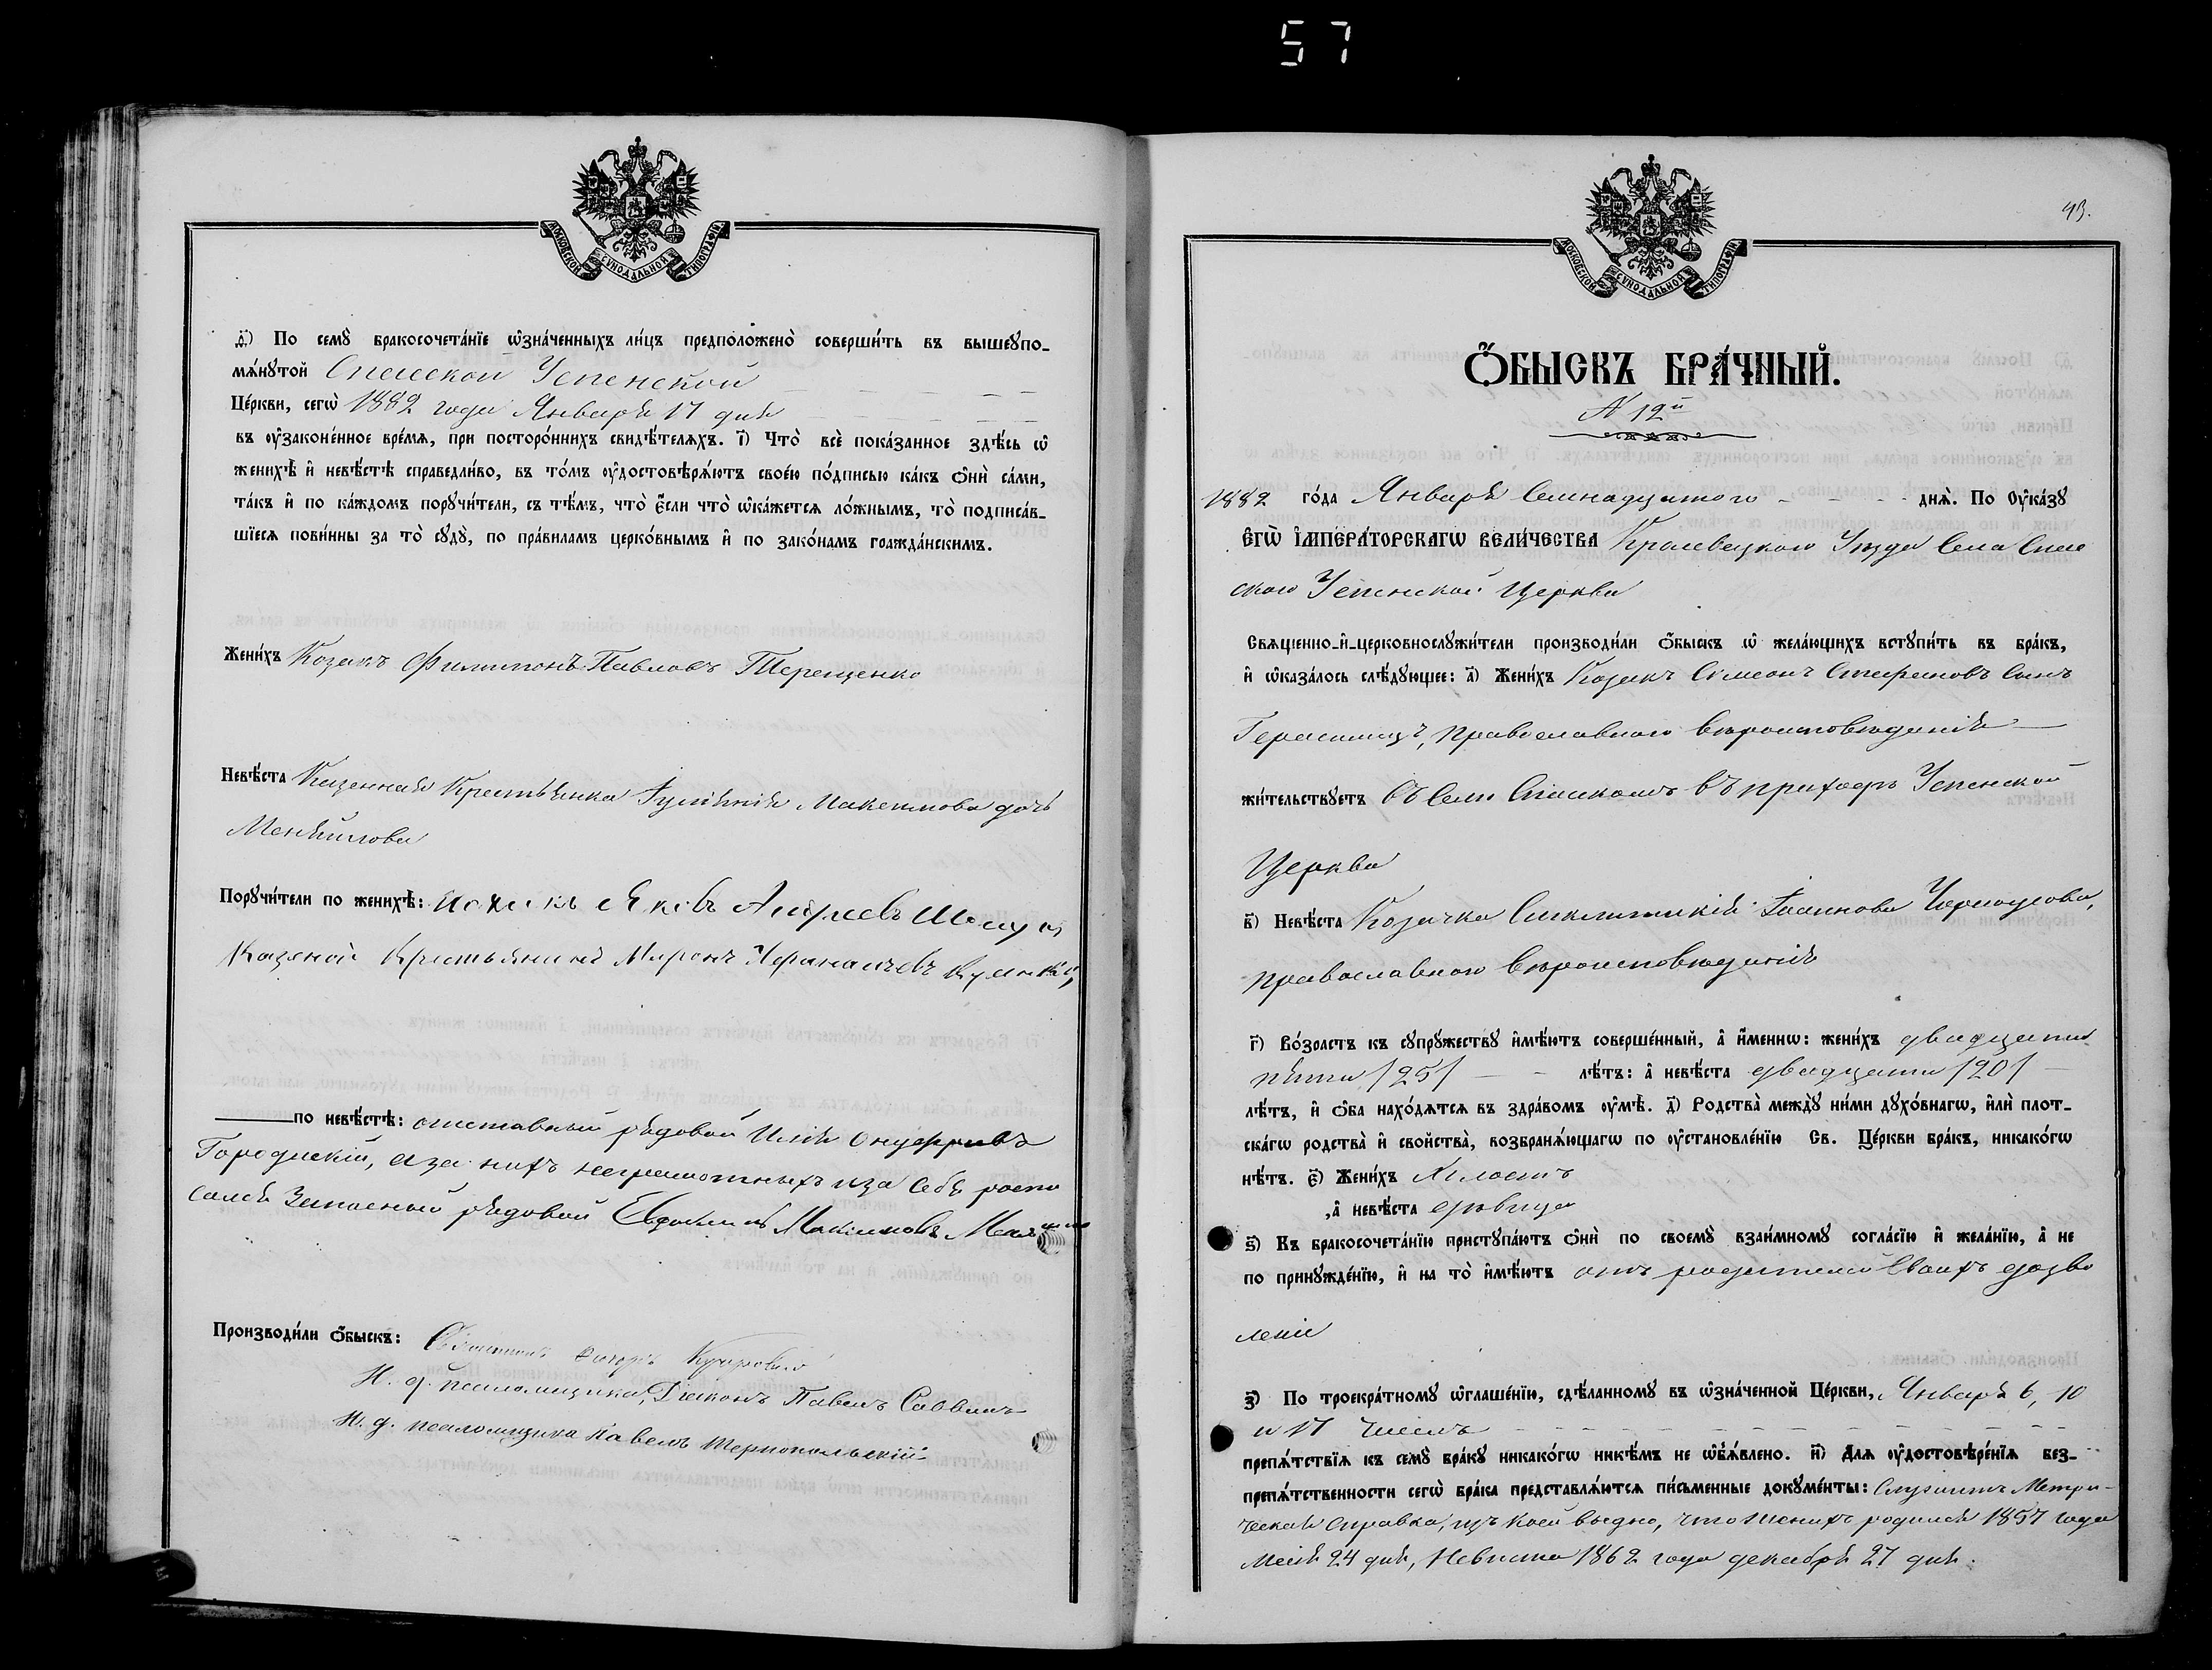 57
МОСКОВСКОЙ СѴНОДАЛЬНОЙ ТИПОГРАФІИ
д҃) По семꙋ̀ бракосочета́нїе ѡ҆зна́ченныхъ ли́цъ предположено̀ соверши́ть въ вышеꙋпо-
мѧ́нꙋтой Спасской Успенской
Це́ркви, сегѡ̀ 1882 года Января 17 дня
въ ᲂу҆законе́нное вре́мѧ, при посторо́ннихъ свидѣ́телѧхъ. і҃) Что̀ всѐ пока́занное здѣ́сь ѡ҆
женихѣ̀ и҆ невѣ́стѣ справедли́во, въ то́мъ ᲂу҆достовѣрѧ́ютъ свое́ю по́дписью ка́къ ѻ҆нѝ са́ми,
та́къ и҆ по ка́ждомъ порꙋчи́тели, съ тѣ́мъ, что̀ є҆́сли что̀ ѡ҆ка́жетсѧ ло́жнымъ, то̀ подписа́в-
шїесѧ пови́нны за то̀ сꙋдꙋ̀, по пра́виламъ церко́внымъ и҆ по зако́намъ гражда́нскимъ.
Жени́хъ Козакъ Филимонъ Павловъ Терещенко
Невѣ́ста Казенная Крестьянка Гуліянія Максимова дочь
Меняйлова
Порꙋчи́тели по женихѣ̀: Козакъ Яковъ Андреевъ
Казеной Крестьянинъ Миронъ
по невѣ́стѣ: отставный рядовой Илія Онуфріевъ
Городискій, а за нихъ неграмотныхъ и за себя роспи
сался Запасный рядовой Евдокимъ Максимовъ
Производи́ли ѻ҆́быскъ: Священникъ
И. д. псаломщика, Діяконъ Павелъ Саввинъ
И. д. псаломщика Павелъ Тернопольскій
43.
МОСКОВСКОЙ СѴНОДАЛЬНОЙ ТИПОГРАФІИ
Ѻ҆́БЫСКЪ БРА́ЧНЫЙ.
N 12й
1882 го́да Января Семнадцатого днѧ̀. По Оу҆ка́зꙋ
Є҆ГѠ̀ І҆МПЕРА́ТОРСКАГѠ ВЕЛИ́ЧЕСТВА Кролевецкого Уезда Села Спас
ского Успенской Церкви
Свѧщенно-и҆-церковнослꙋжи́тели производи́ли ѻ҆́быскъ ѡ҆ жела́ющихъ встꙋпи́ть въ бра́къ,
и҆ ѡ҆каза́лось слѣ́дꙋющее: а҃) Жени́хъ Козакъ Симеонъ Стефановъ Сынъ
Герасимецъ, православного вероисповеданія
жи́тельствꙋетъ въ Селе Спаскомъ въ приходе Успенской
Церкви
в҃) Невѣ́ста Козачка Синклитикія Іоаннова Черноусова,
православного вероисповеданія
г҃) Во́зрастъ къ сꙋпрꙋ́жествꙋ и҆мѣ́ютъ соверше́нный, а҆ и҆́меннѡ: жени́хъ двадцати
пяти /25/ лѣ́тъ: а҆ невѣ́ста двадцати /20/
лѣ́тъ, и҆ ѻ҆́ба нахо́дѧтсѧ въ здра́вомъ ᲂу҆мѣ̀. д҃) Родства̀ междꙋ̀ ни́ми дꙋхо́внагѡ, и҆лѝ плот-
ска́гѡ родства̀ и҆ свойства̀, возбранѧ́ющагѡ по ᲂу҆становле́нїю Св. Це́ркви бра́къ, никако́гѡ
нѣ́тъ. є҃) Жени́хъ Холостъ
а҆ невѣ́ста девица
ѕ҃) Къ бракосочета́нїю пристꙋпа́ютъ ѻ҆нѝ по своемꙋ̀ взаи́мномꙋ согла́сїю и҆ жела́нїю, а҆ не
по принꙋжде́нїю, и҆ на то̀ и҆мѣ́ютъ отъ родителей Своихъ дозво
леніе
з҃) По троекра́тномꙋ ѡ҆глаше́нїю, сдѣ́ланномꙋ въ ѡ҆зна́ченной Це́ркви, Января 6, 10
и 17 числъ
препѧ́тствїѧ къ семꙋ̀ бра́кꙋ никако́гѡ никѣ́мъ не ѡ҆б̾ѧ́влено. и҃) Для ᲂу҆достовѣре́нїѧ без-
препѧ́тственности сегѡ̀ бра́ка представлѧ́ютсѧ пи́сьменные докꙋме́нты: Служитъ Метри-
ческая справка, изъ коей видно, что Женихъ родился 1857 года
Мая 24 дня, Невеста 1862 года декабря 27 дня.